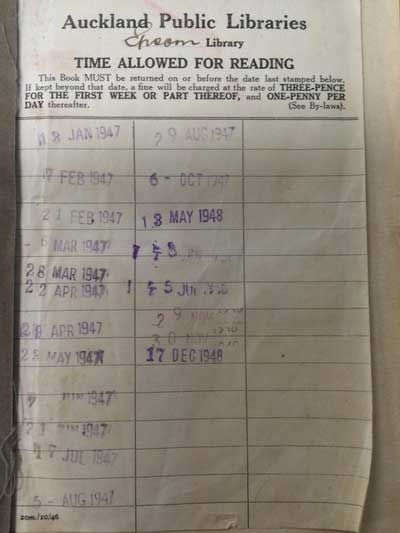 Auckland Public Libraries
Epsom Library
TIME ALLOWED FOR READING
This Book MUST be returned on or before the date last stamped below.
If kept beyond that date, a fine will be charged at the rate of THREE-PENCE
FOR THE FIRST WEEK OR PART THEREOF, and ONE-PENNY PER
DAY thereafter. (See By-laws).
18 JAN 1947
7 FEB 1947
21 FEB 1947
MAR 1947
28 MAR 1947
22 APR 1947
APR 1947
MAY 1947
1947
1947
17 JUL 1947
5 - AUG 1947
29 AUG 1947
6 - OCT 1947
13 MAY 1948
29 NOV
30 NOV
17 DEC 1948
20m./10/46